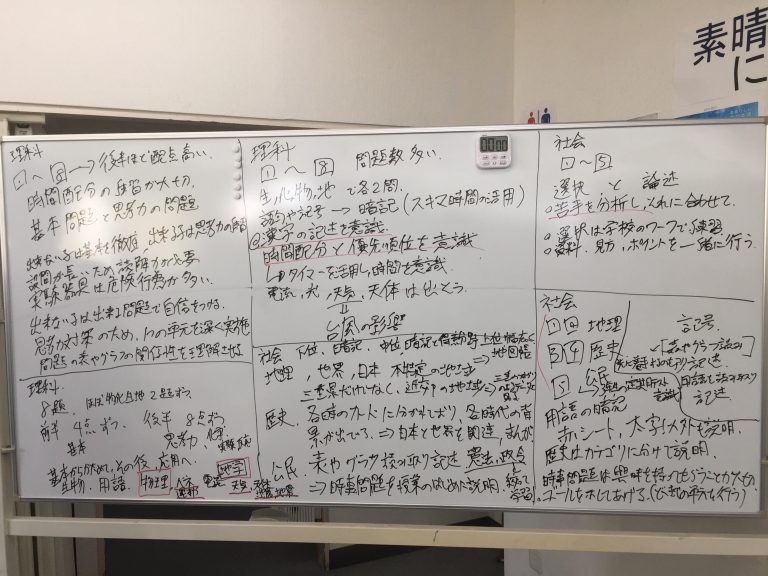 素晴
に
理科
1～8→後半ほど配点高い。
時間配分の練習が大切。
基本問題と思考力の問題
出来ない子は基本を徹底、出来る子は思考力の問
設問が長いため読解力が必要
実験器具は危険行為が多い。
出来ない子は出来る問題で自信をつける
思考力対策のため、1つの単元を深く実施
問題の表やグラフの関係性を理解させる
理科
8題、ほぼ物化生地2題ずつ。
前半4点ずつ、後半8点ずつ
基本 思考力、
基本からかためて、その後、応用へ
生物、用語、物理、
地学
理科
1～8 問題数多い。
生、化、物、地で各2問。
語句や記号→暗記(スキマ時間の活用)
◎漢字の記述を意識。
時間配分と優先順位を意識
↳タイマーを活用し時間を意識
電流、光、天気、天体は出そう。
||
台風の影響
社会 下位、暗記、中位、暗記と
地理、世界、日本 不特定の地域 ⇒地図帳
三重県だけでなく、近畿の地域⇒
歴史、各時のカードに分かれており、各時代の背
景が出てる。⇒日本と世界を関連、まんが
公民 表やグラフ 読み取り記述 憲法、政治
⇒時事問題を授業のはじめに説明。
社会
1～5
選択と論述
◎苦手を分析し、それに合わせて。
◎選択は学校のワークで練習
◎資料、見方、ポイントを一緒に行う。
社会
1 2 地理
3 4 歴史
5 公民
記号
並び替え
記述
用語の暗記
赤シート、太字以外も説明。
歴史はカテゴリに分けて説明。
時事問題は興味を持ってもらうことが大切
ゴールを示してあげる。